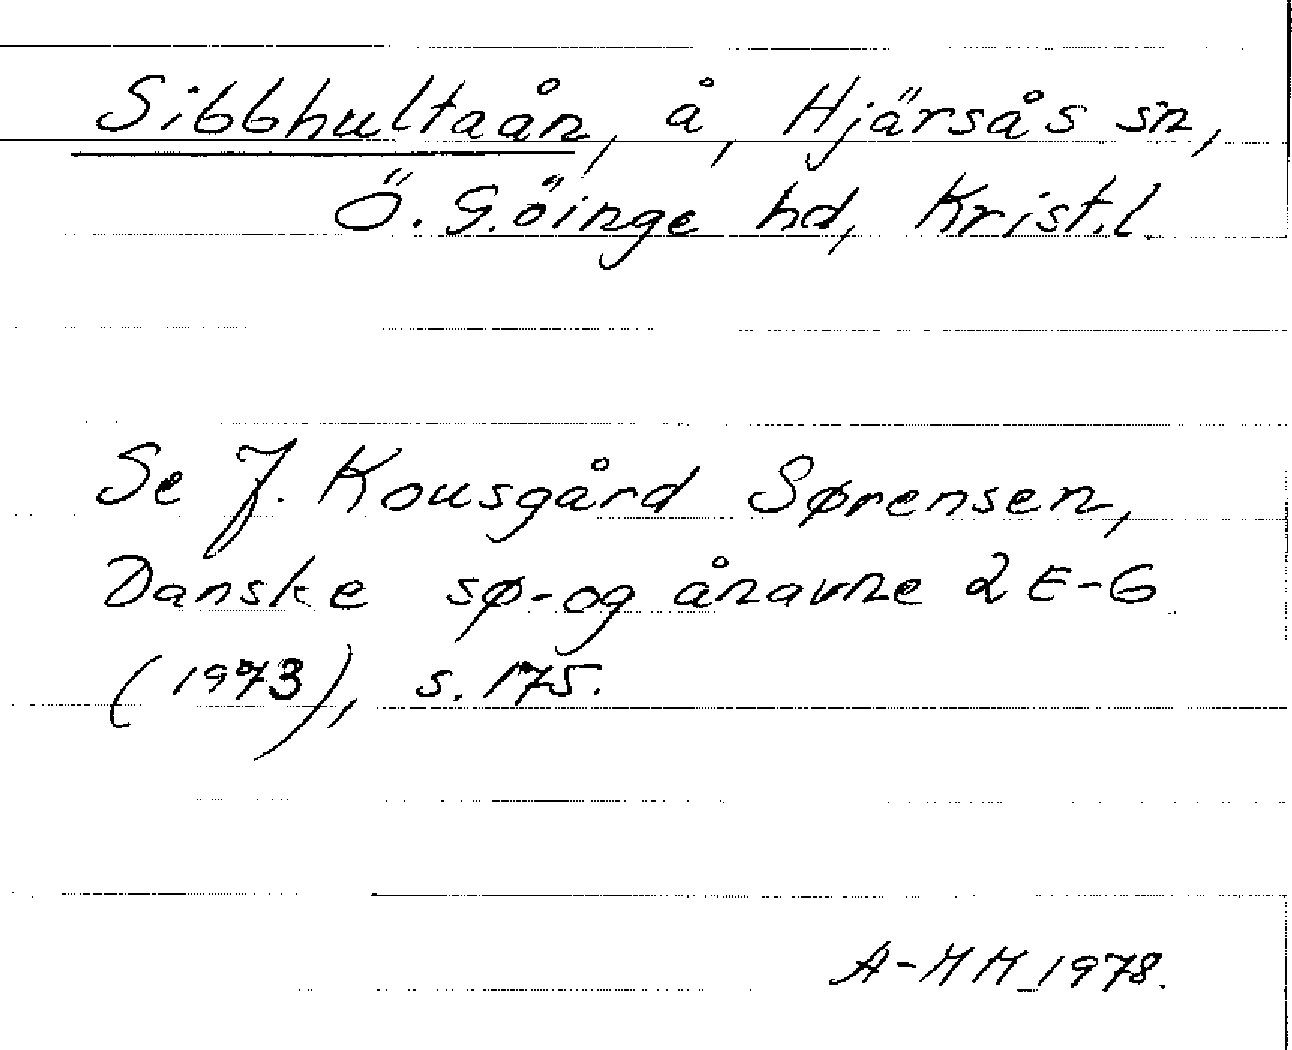 Sibbhultaån, å, Hjärsås sn,
Ö. Göinge hd, Krist.l.
Se J. Kousgård Sørensen,
Danske sø- og ånavne 2 E-G
(1973), s. 175.
A-MM 1978.